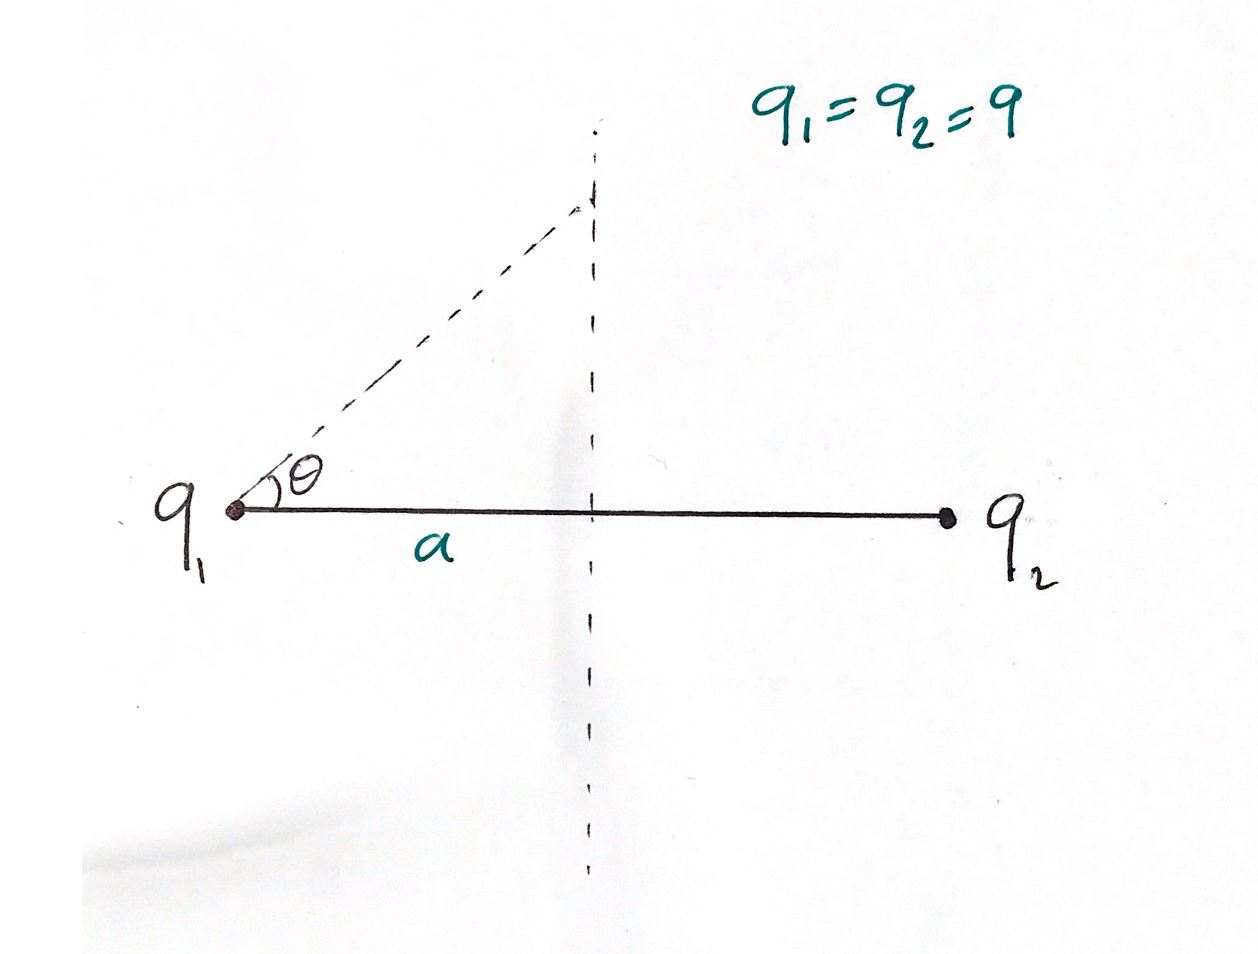 q₁ = q₂ = q
θ
q₁
a
q₂